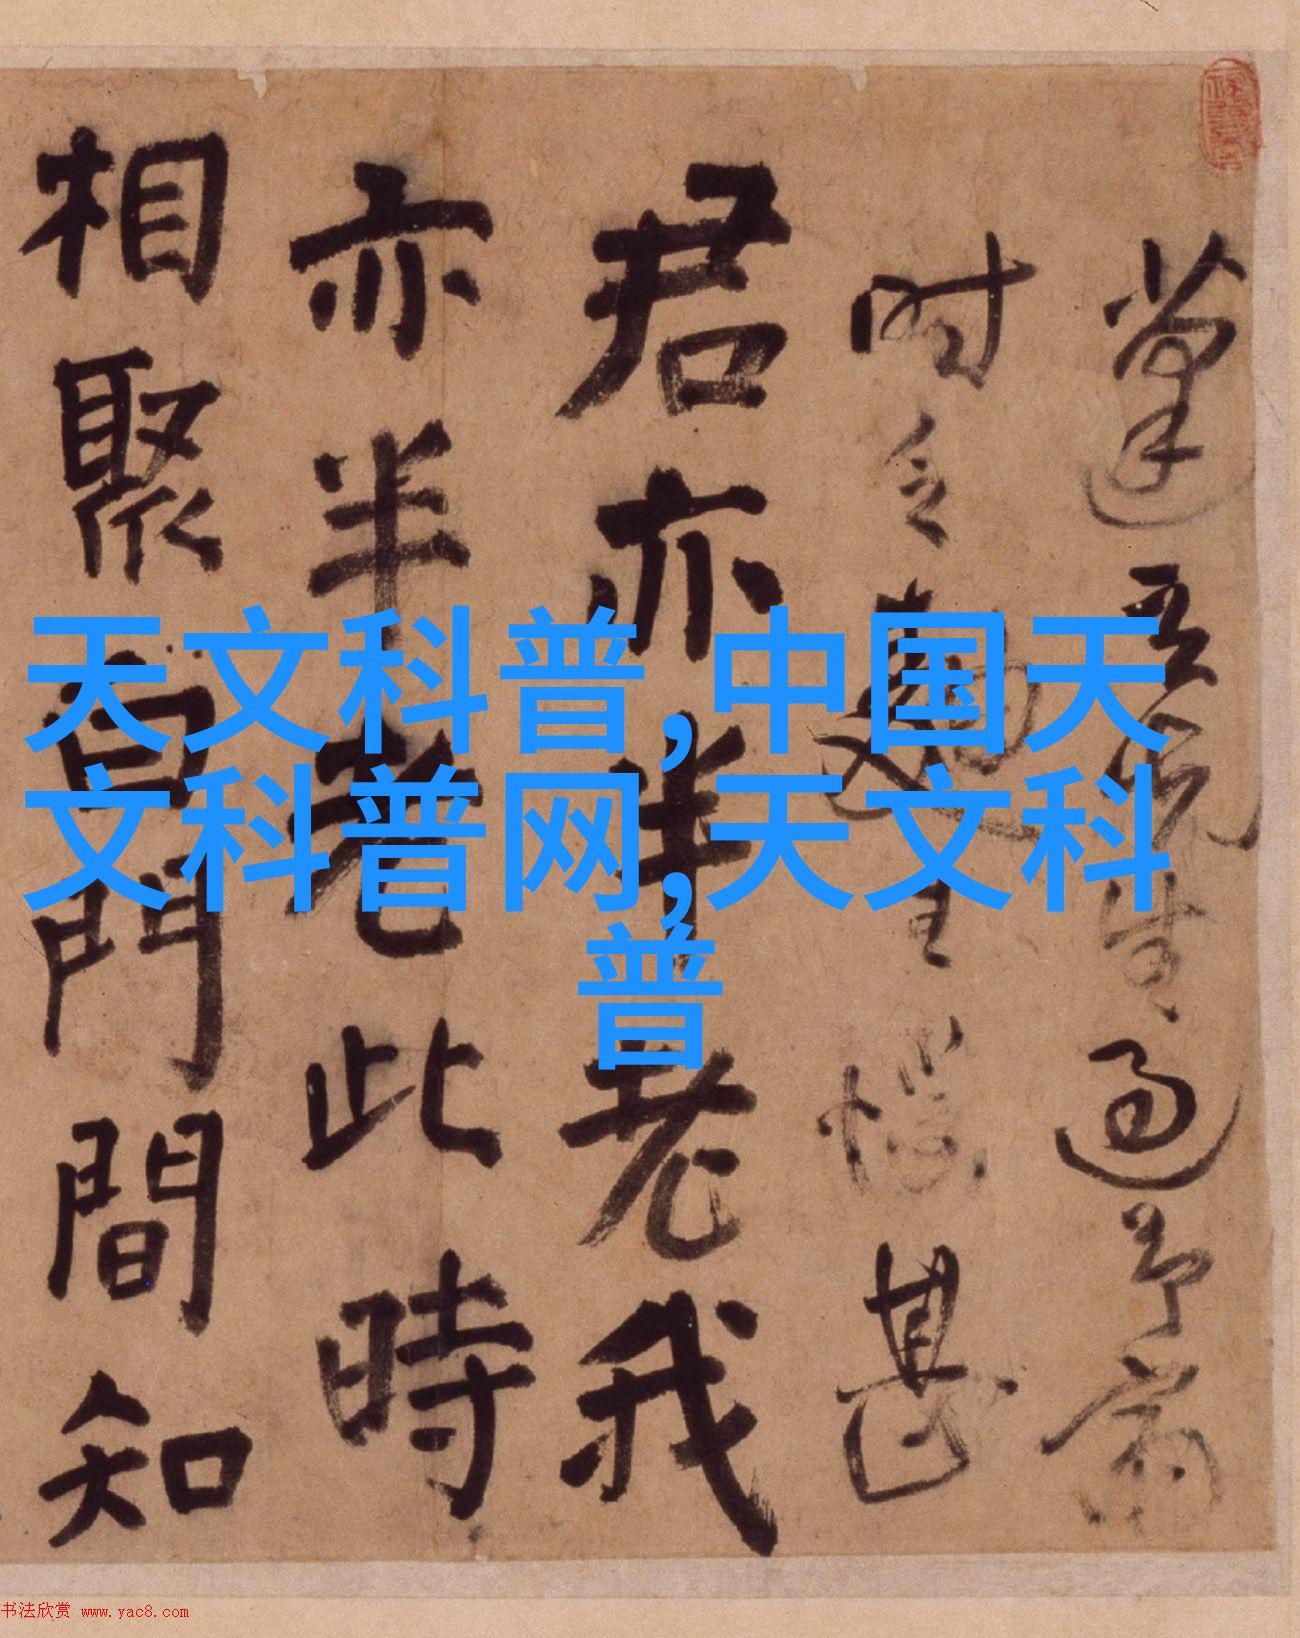 天文科普,中国天
文科普网,天文科
普
生過予
時 甚
君亦半老我
亦半老此時
相聚白門間知
书法欣赏 www.yac8.com